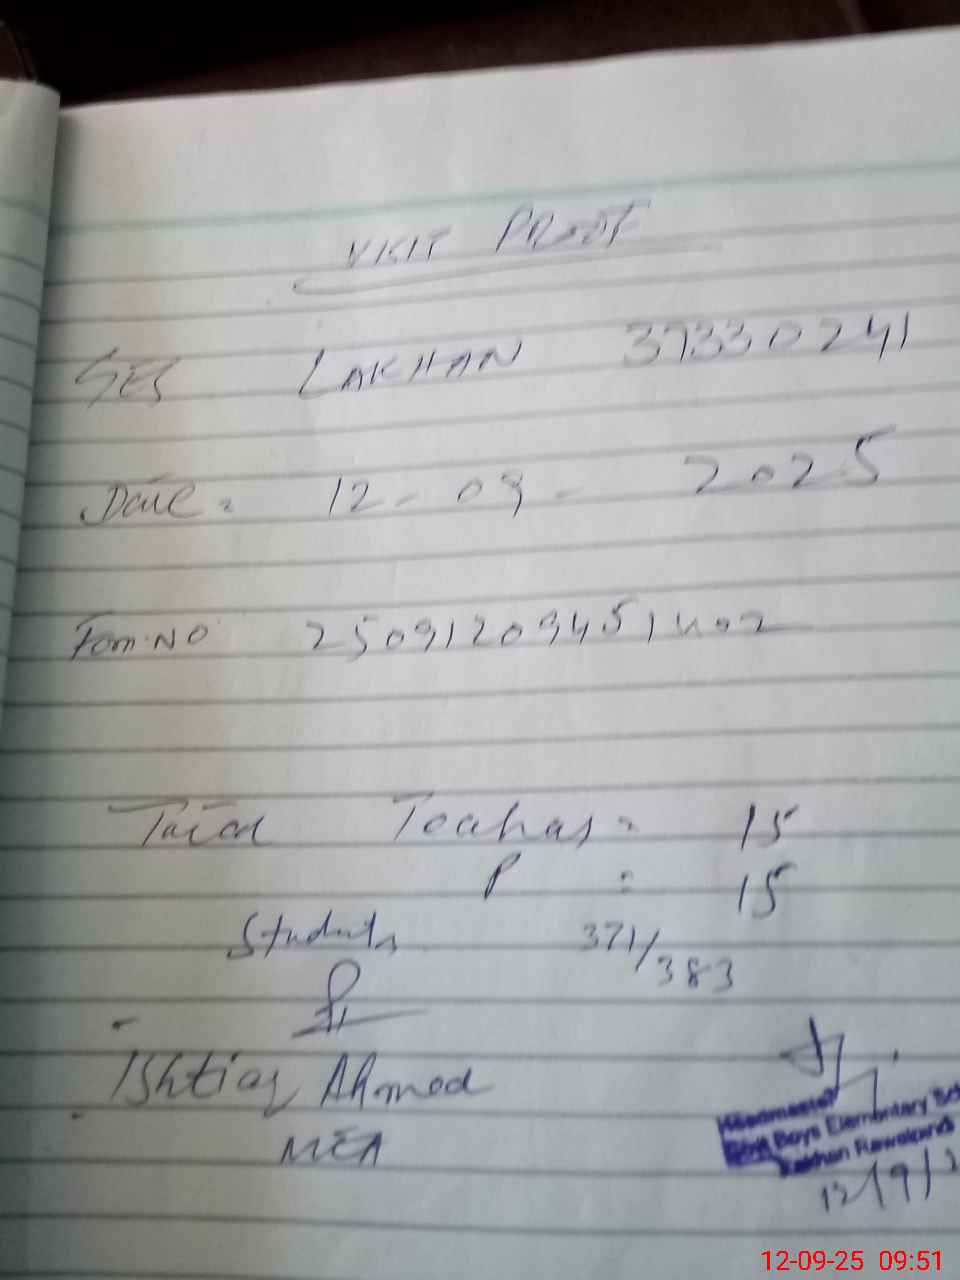 VISIT PROOF
GES LAKHAN 37330241
Date = 12-09-2025
Form.NO 25091209451402
Total Teachers = 15
P : 15
Students 371/383
Ishtiaq Ahmed
MEA
Headmaster
Govt Boys Elementary Sch
Lakhan Rawalpindi
12/9/2
12-09-25 09:51